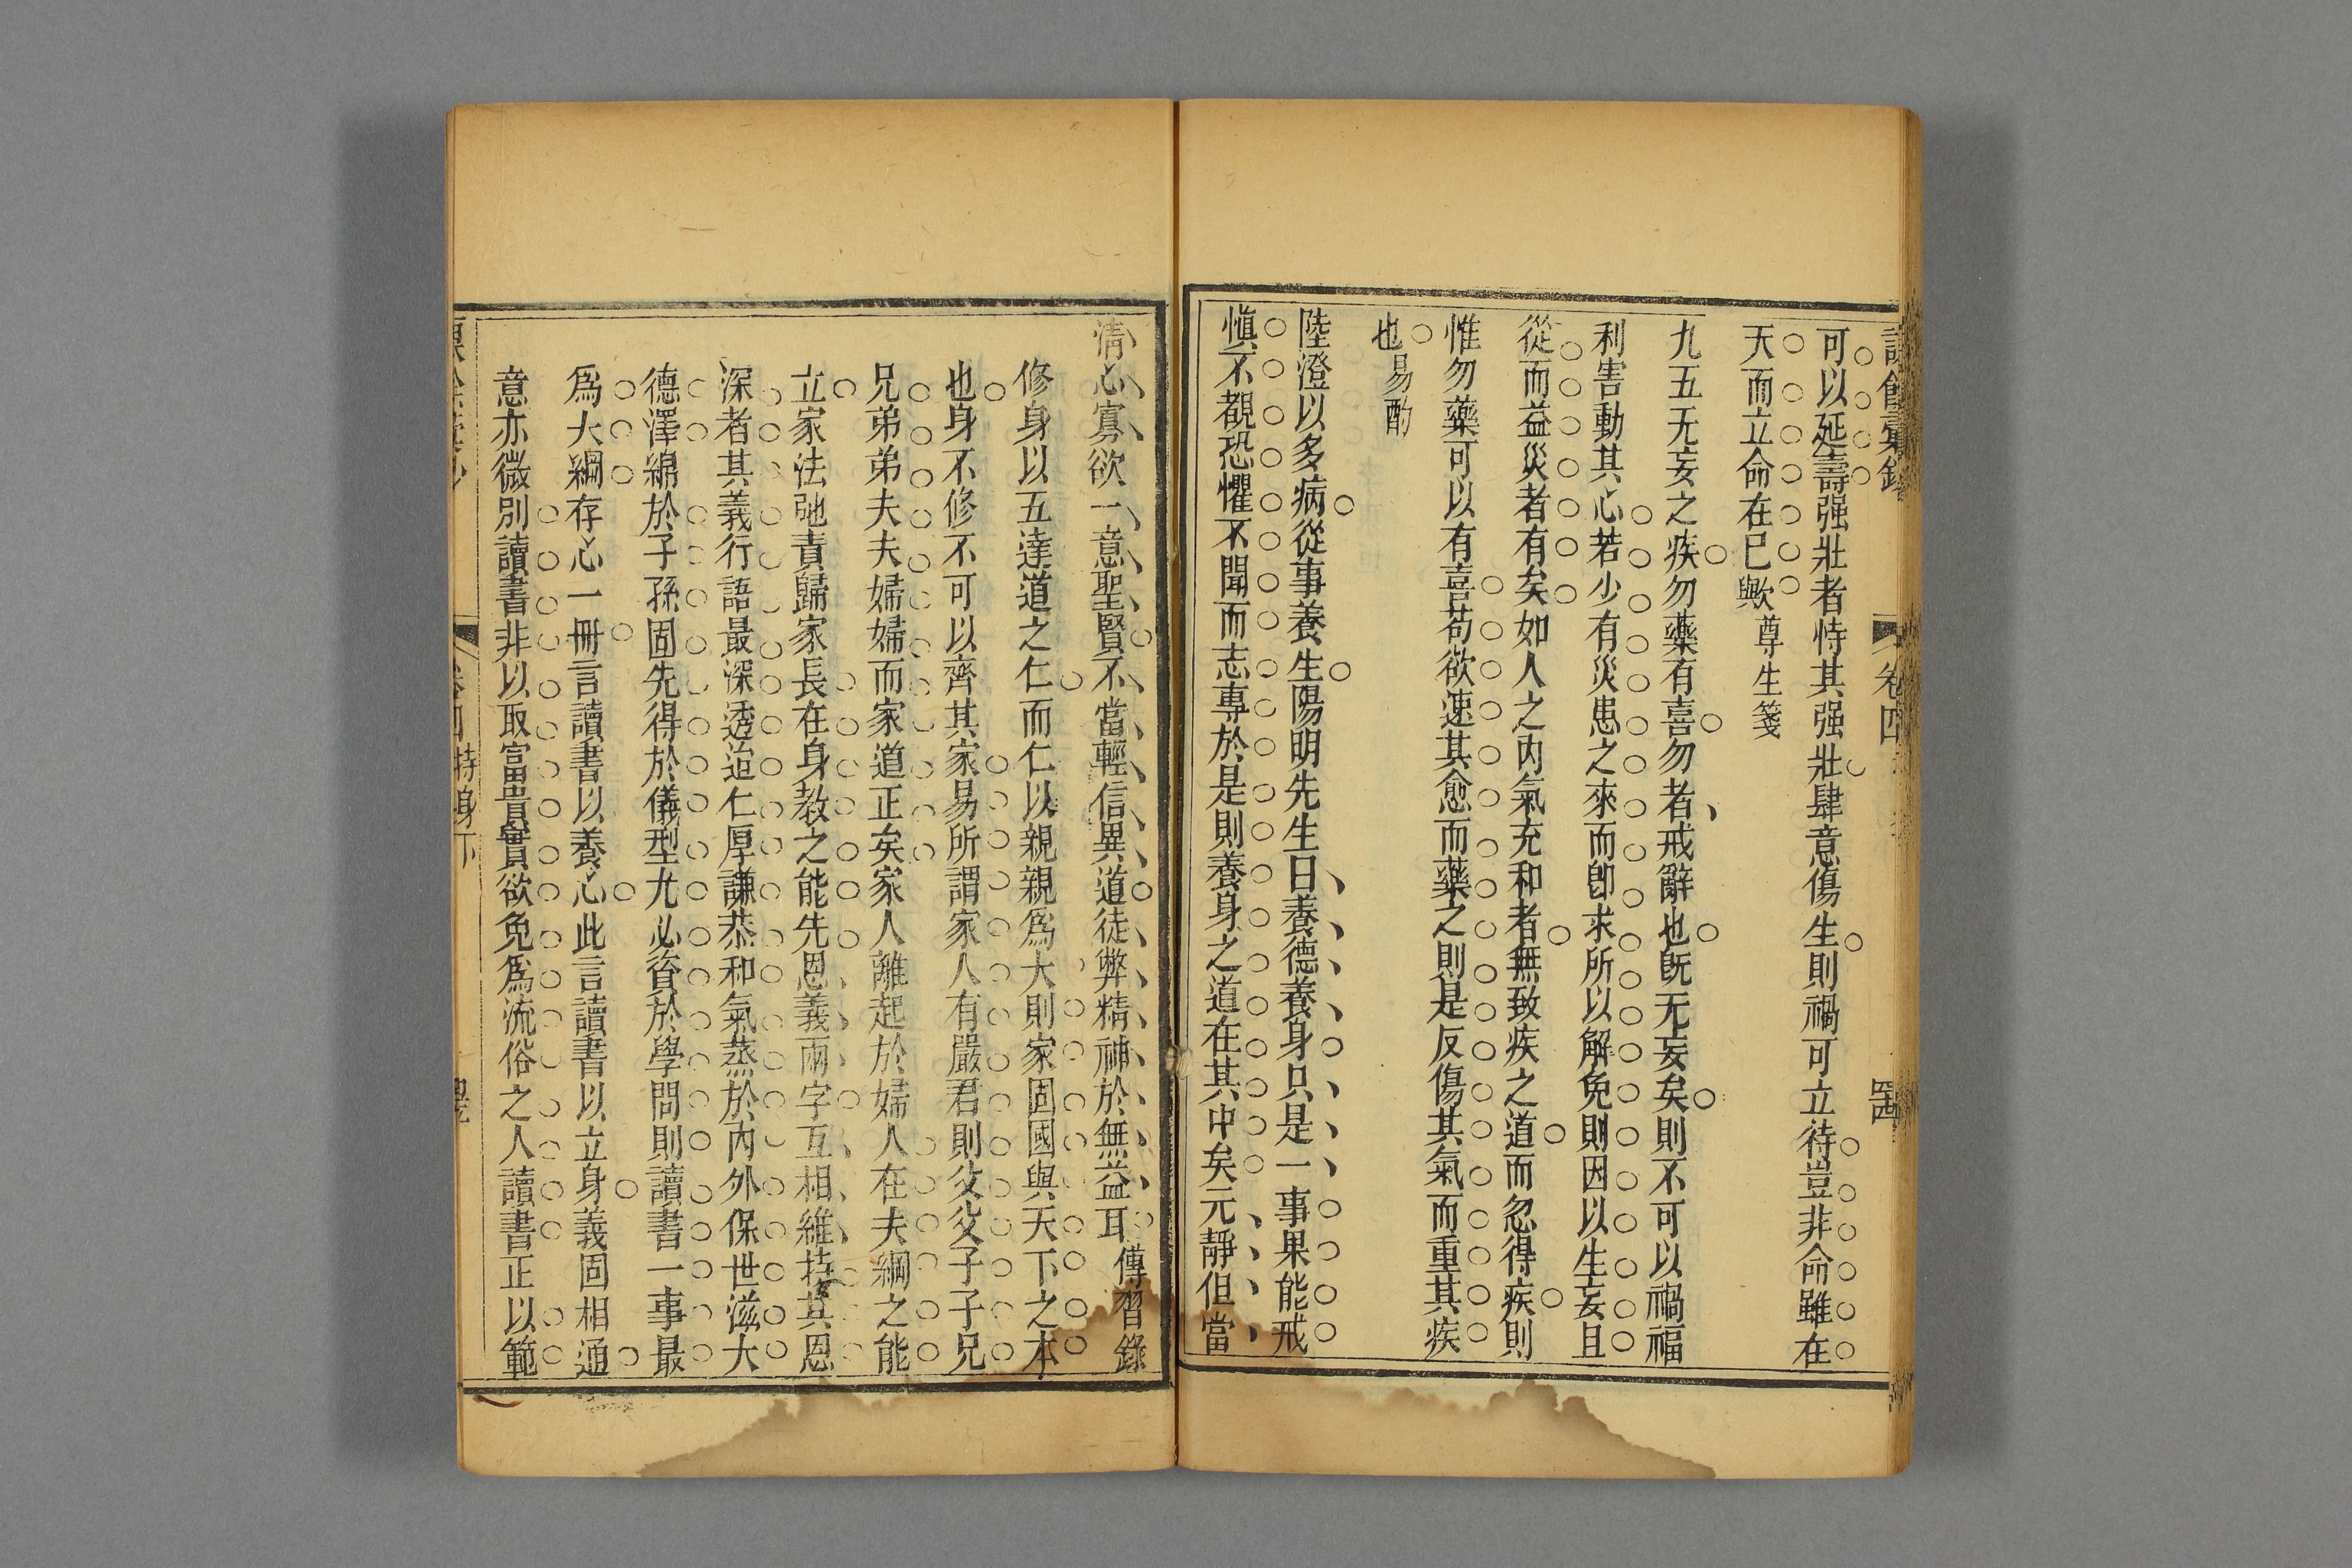 卷四
可以延壽强壯者恃其强壯肆意傷生則禍可立待豈非命雖在
天而立命在己歟尊生箋
九五无妄之疾勿藥有喜勿者戒辭也既无妄矣則不可以禍福
利害動其心若少有災患之來而卽求所以解免則因以生妄且
從而益災者有矣如人之內氣充和者無致疾之道而忽得疾則
惟勿藥可以有喜苟欲速其愈而藥之則是反傷其氣而重其疾
也易酌
陸澄以多病從事養生陽明先生曰養德養身只是一事果能戒
愼不覩恐懼不聞而志專於是則養身之道在其中矣元靜但當
清心寡欲一意聖賢不當輕信異道徒弊精神於無益耳傳習錄
修身以五達道之仁而仁以親親爲大則家固國與天下之本
也身不修不可以齊其家易所謂家人有嚴君則父父子子兄
兄弟弟夫夫婦婦而家道正矣家人離起於婦人在夫綱之能
立家法弛責歸家長在身教之能先恩義兩字互相維持其恩
深者其義行語最深透迨仁厚謙恭和氣蒸於內外保世滋大
德澤綿於子孫固先得於儀型尤必資於學問則讀書一事最
爲大綱存心一冊言讀書以養心此言讀書以立身義固相通
意亦微別讀書非以取富貴實欲免爲流俗之人讀書正以範
持身下